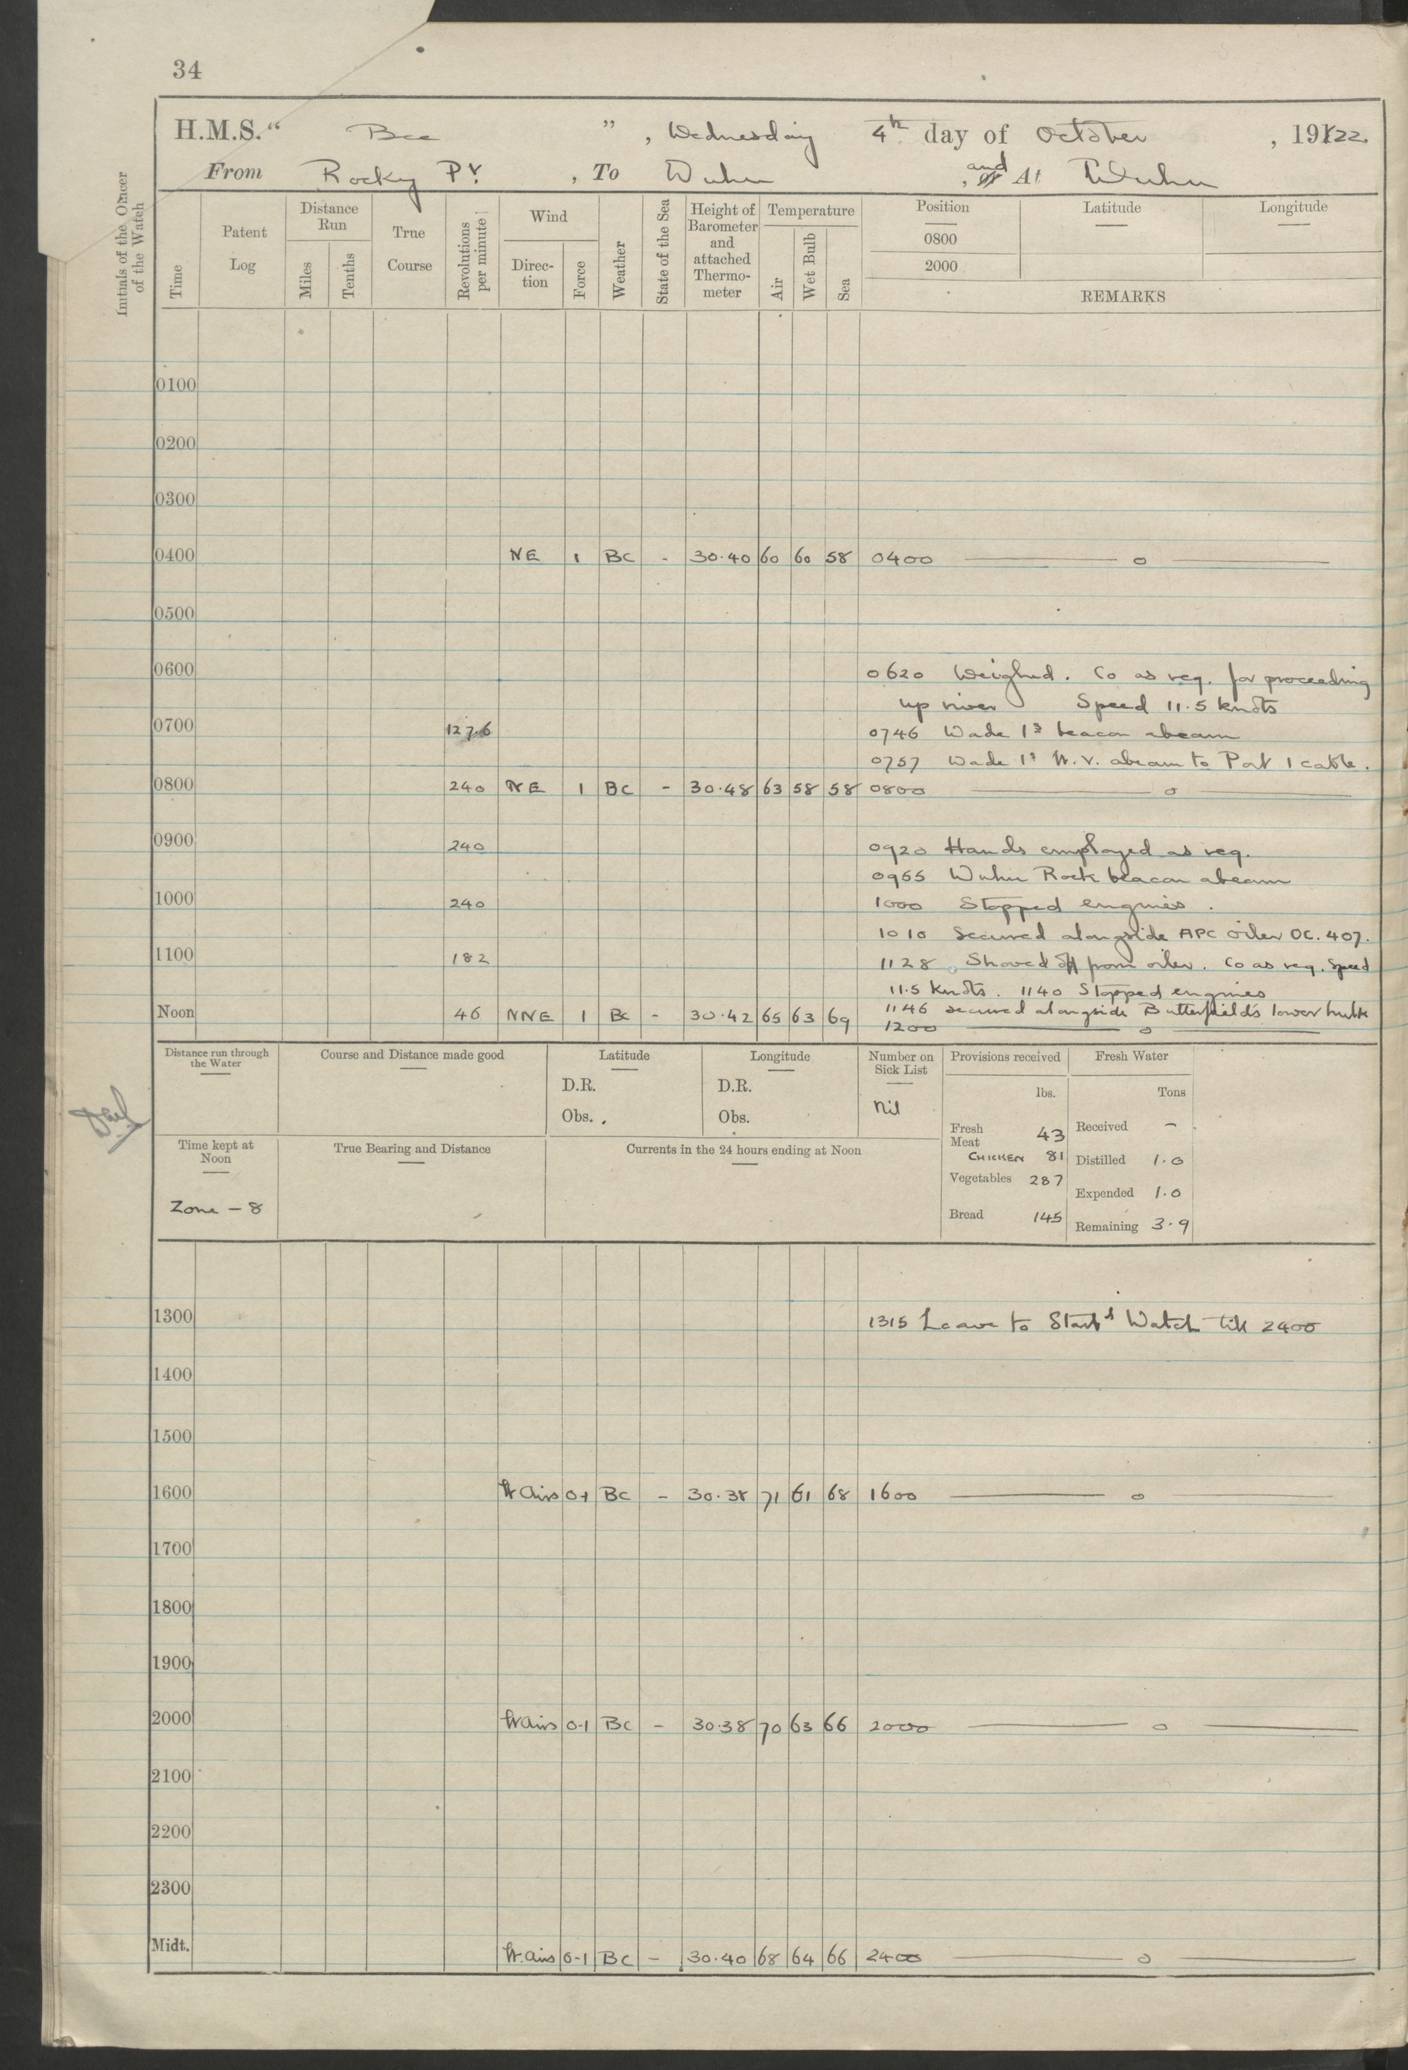 34
H.M.S. "Bee", Wednesday 4th day of October, 1922.
From Rocky Pt., To Wuhu, and or At Wuhu
Initials of the Officer of the Watch
Time
Patent Log
Distance Run
Miles
Tenths
True Course
Revolutions per minute
Wind
Direction
Force
Weather
State of the Sea
Height of Barometer and attached Thermometer
Temperature
Air
Wet Bulb
Sea
Position
Latitude
Longitude
0800
2000
REMARKS
0100
0200
0300
0400 NE 1 BC - 30.40 60 60 58 0400 ——— o ———
0500
0600
0620 Weighed. Co as req. for proceeding
up river Speed 11.5 knots
0700 127.6
0746 Wade Id beacon abeam
0757 Wade Id N.V. abeam to Port 1 cable.
0800 240 NE 1 BC - 30.48 63 58 58 0800 ——— o ———
0900 240
0920 Hands employed as req.
0955 Wuhu Rock beacon abeam
1000 240
1000 Stopped engines.
1010 Secured alongside APC oiler OC. 407.
1100 182
1128 Shoved off from oiler. Co as req. Speed
11.5 knots. 1140 Stopped engines
1146 secured alongside Butterfield's lower hulk
Noon 46 NNE 1 BC - 30.42 65 63 69 1200 ——— o ———
Distance run through the Water
Course and Distance made good
Latitude
D.R.
Obs.
Longitude
D.R.
Obs.
Number on Sick List
Nil
Provisions received
lbs.
Fresh Meat 43
CHICKEN 81
Vegetables 287
Bread 145
Fresh Water
Tons
Received -
Distilled 1.0
Expended 1.0
Remaining 3.9
Time kept at Noon
Zone - 8
True Bearing and Distance
Currents in the 24 hours ending at Noon
1300
1315 Leave to Starbd Watch till 2400
1400
1500
1600 Lt Airs 0-1 BC - 30.38 71 61 68 1600 ——— o ———
1700
1800
1900
2000 Lt Airs 0-1 BC - 30.38 70 63 66 2000 ——— o ———
2100
2200
2300
Midt. Lt. airs 0-1 BC - 30.40 68 64 66 2400 ——— o ———